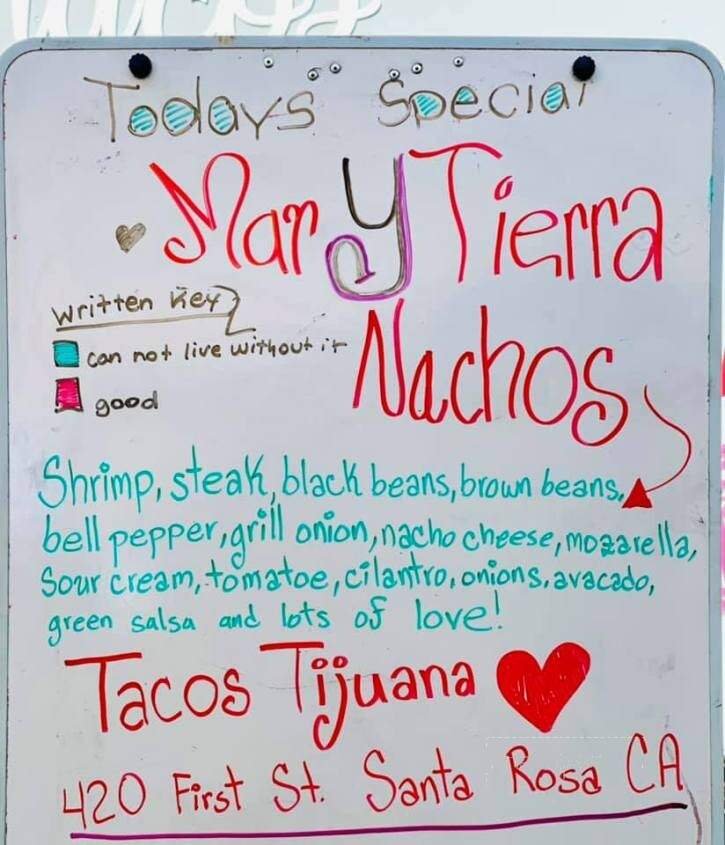 Todays Special
Mar Y Tierra
Nachos
Written Key
can not live without it
good
Shrimp, steak, black beans, brown beans,
bell pepper, grill onion, nacho cheese, mozarella,
Sour cream, tomatoe, cilantro, onions, avacado,
green salsa and lots of love!
Tacos Tijuana
420 First St. Santa Rosa CA